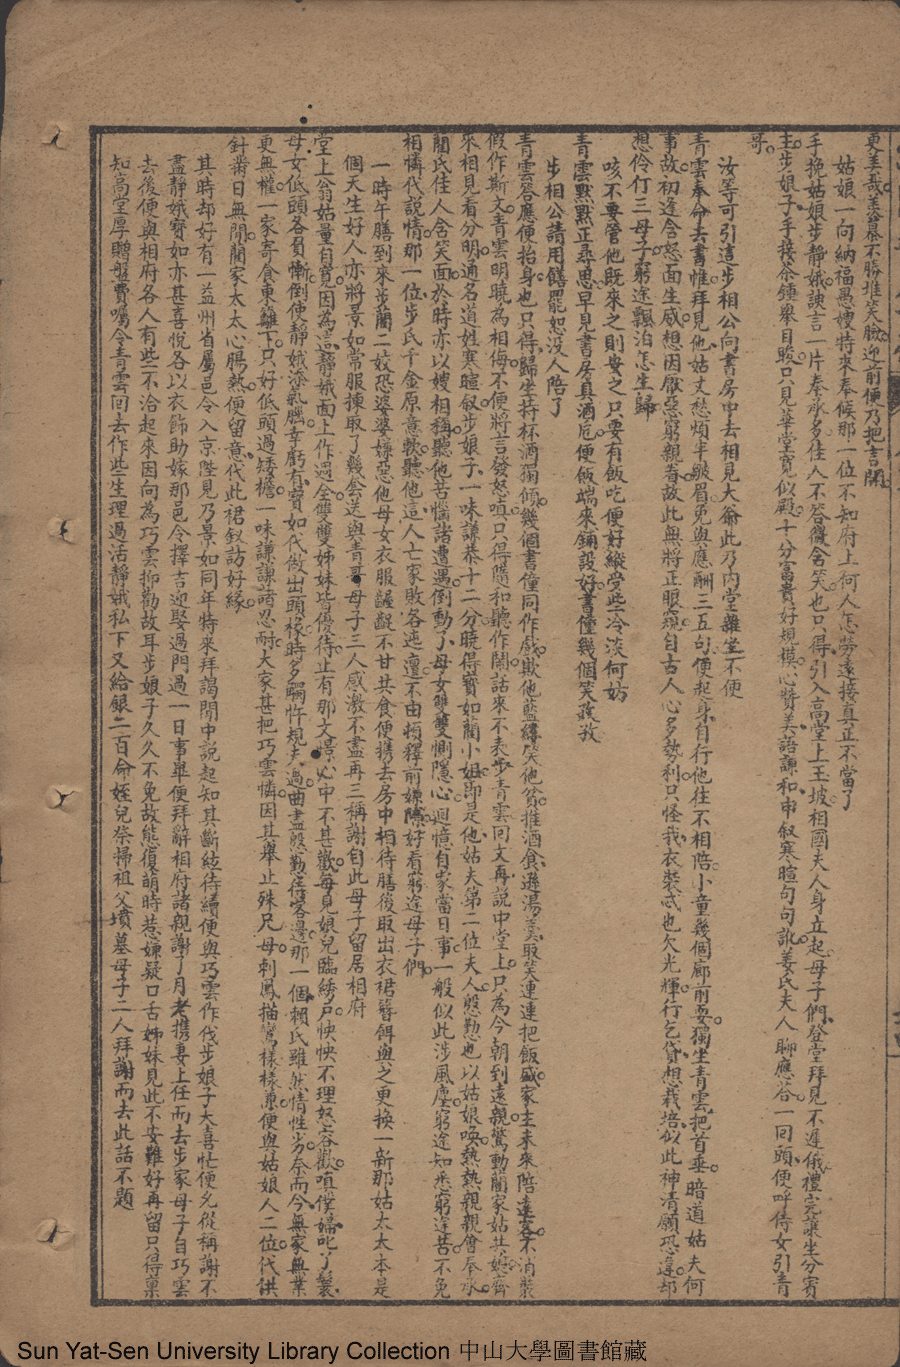 更羞哉羨慕不勝堆笑臉迎前便乃把言開
姑娘一向納福愚嫂特來奉候那一位不知府上何人怎勞遠接真正不當了
手挽姑娘步靜娥諛言一片奉承多佳人不答微含笑也只得引入高堂上玉坡相國夫人身立起母子們登堂拜見不遲儀禮完讓坐分賓
主步娘子手接茶鍾舉目睃只見華堂寬似殿十分富貴好規模心贊美語謙和申叙寒暄句句訛姜氏夫人聊應答一回頭便呼侍女引青
哥
汝等可引這步相公向書房中去相見大爺此乃內堂雜堂不便
青雲奉命去書帷拜見他姑丈愁煩半皺眉免與應酬三五句便起身自行他往不相陪小童幾個廊前耍獨坐青雲把首垂暗道姑夫何
事故初逢含怒面生威想因厭惡窮親眷故此無將正眼窺自古人心多勢利只怪我衣裝忒也欠光輝行乞貸想栽培似此神清願恐違却
想伶仃三母子窮途飄泊怎生歸
咳不要管他既來之則安之只要有飯吃便好縱受些冷淡何妨
青雲默默正尋思早見書房具酒卮便飯端來鋪設好書僮幾個笑孩孜
步相公請用饍罷恕沒人陪了
青雲答應便抬身也只得歸坐持杯酒獨傾幾個書僮同作戲欺他藍縷笑他貧推酒食遞湯羹取笑連連把飯盛家主未來陪遠客不消裝
假作斯文青雲明曉為相侮不便將言發怒嗔只得隨和聽作閙話來不表步青雲回文再說中堂上只為今朝到遠親驚動蘭家姑共嫂齊
來相見看分明通名道姓寒暄叙步娘子一味謙恭十二分曉得寶如蘭小姐即是他姑夫第二位夫人慇懃也以姑娘喚熱熱親親會奉承
蘭氏佳人含笑面於時亦以嫂相稱聽他苦惱諸遭遇倒動了母女雙雙惻隱心迴憶自家當日事一般似此涉風塵窮途知悉窮途苦不免
相憐代說情那一位步氏千金原意軟聽他這人亡家敗各迍邅不由頓釋前嫌隙好看窮途母子們
一時午膳到來步蘭二妏恐婆婆嫌惡他母女衣服齷齪不甘共食便携去房中相待膳後取出衣裙簪餌與之更換一新那姑太太本是
個天生好人亦將景如常服揀取了幾套送與青哥母子三人感激不盡再三稱謝自此母子留居相府
堂上翁姑量自寬因為這靜娥面上作過全雙雙姊妹皆優待止有那文景心中不甚歡每見娘兒臨綉戶怏怏不理怒容歡嗔僕婦叱了鬟
母女低頭各負慚倒使靜娥添氣㬹幸虧有寶如代做出頭椽時多觸忤規夫過曲盡慇懃侍客邊那一個賴氏雖然情性劣奈而今無家無業
更無權一家寄食東籬下只好低頭過矮檐一味謙謙諸忍耐大家甚把巧雲憐因其舉止殊尺母刺鳳描鸞樣樣兼便與姑娘人二位代供
針黹日無閒蘭家太太心腸熱便留意代此裙釵訪好緣
其時却好有一益州省屬邑令入京陛見乃景如同年特來拜謁閒中說起知其斷絃待續便與巧雲作伐步娘子大喜忙便允從稱謝不
盡靜娥寶如亦甚喜悅各以衣飾助嫁那邑令擇吉迎娶過門過一日事畢便拜辭相府諸親謝了月老携妻上任而去步家母子自巧雲
去後便與相府各人有些不洽起來因向為巧雲抑勸故耳步娘子久久不免故態復萌時惹嫌疑口舌姊妹見此不安難好再留只得稟
知高堂厚贈盤費囑令青雲回去作些生理過活靜娥私下又給銀二百命姪兒祭掃祖父墳墓母子二人拜謝而去此話不題
Sun Yat-Sen University Library Collection 中山大學圖書館藏